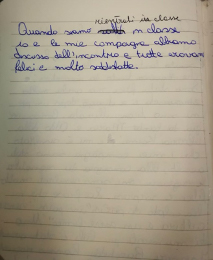 rientrati in classe
Quando siamo in classe
io e le mie compagne abbiamo
discusso dell'incontro e tutte eravamo
felici e molto soddisfatte.